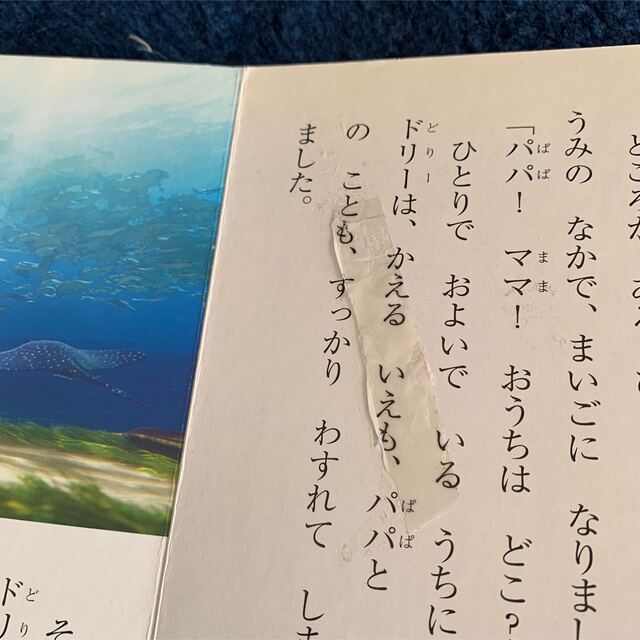 ところが
うみの なかで、まいごに なりまし
ぱぱ まま
「パパ！ ママ！ おうちは どこ？
ひとりで およいで いる うちに
どりー ぱぱ
ドリーは、かえる いえも、パパと
の ことも、すっかり わすれて しま
ました。
そ
どり
ドリ